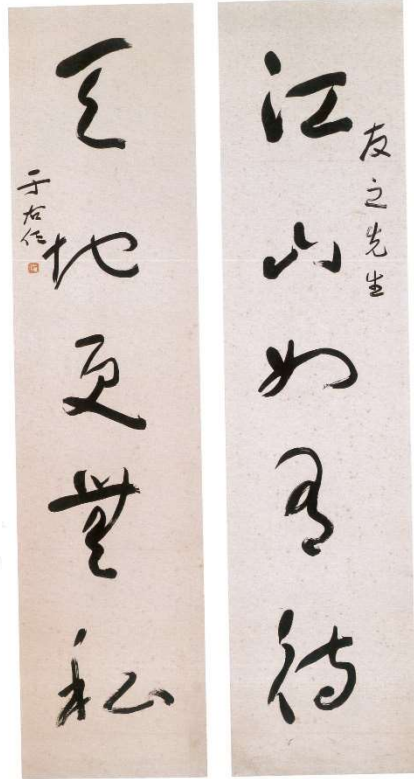 友之先生
江山如有待
天地更無私
于右任